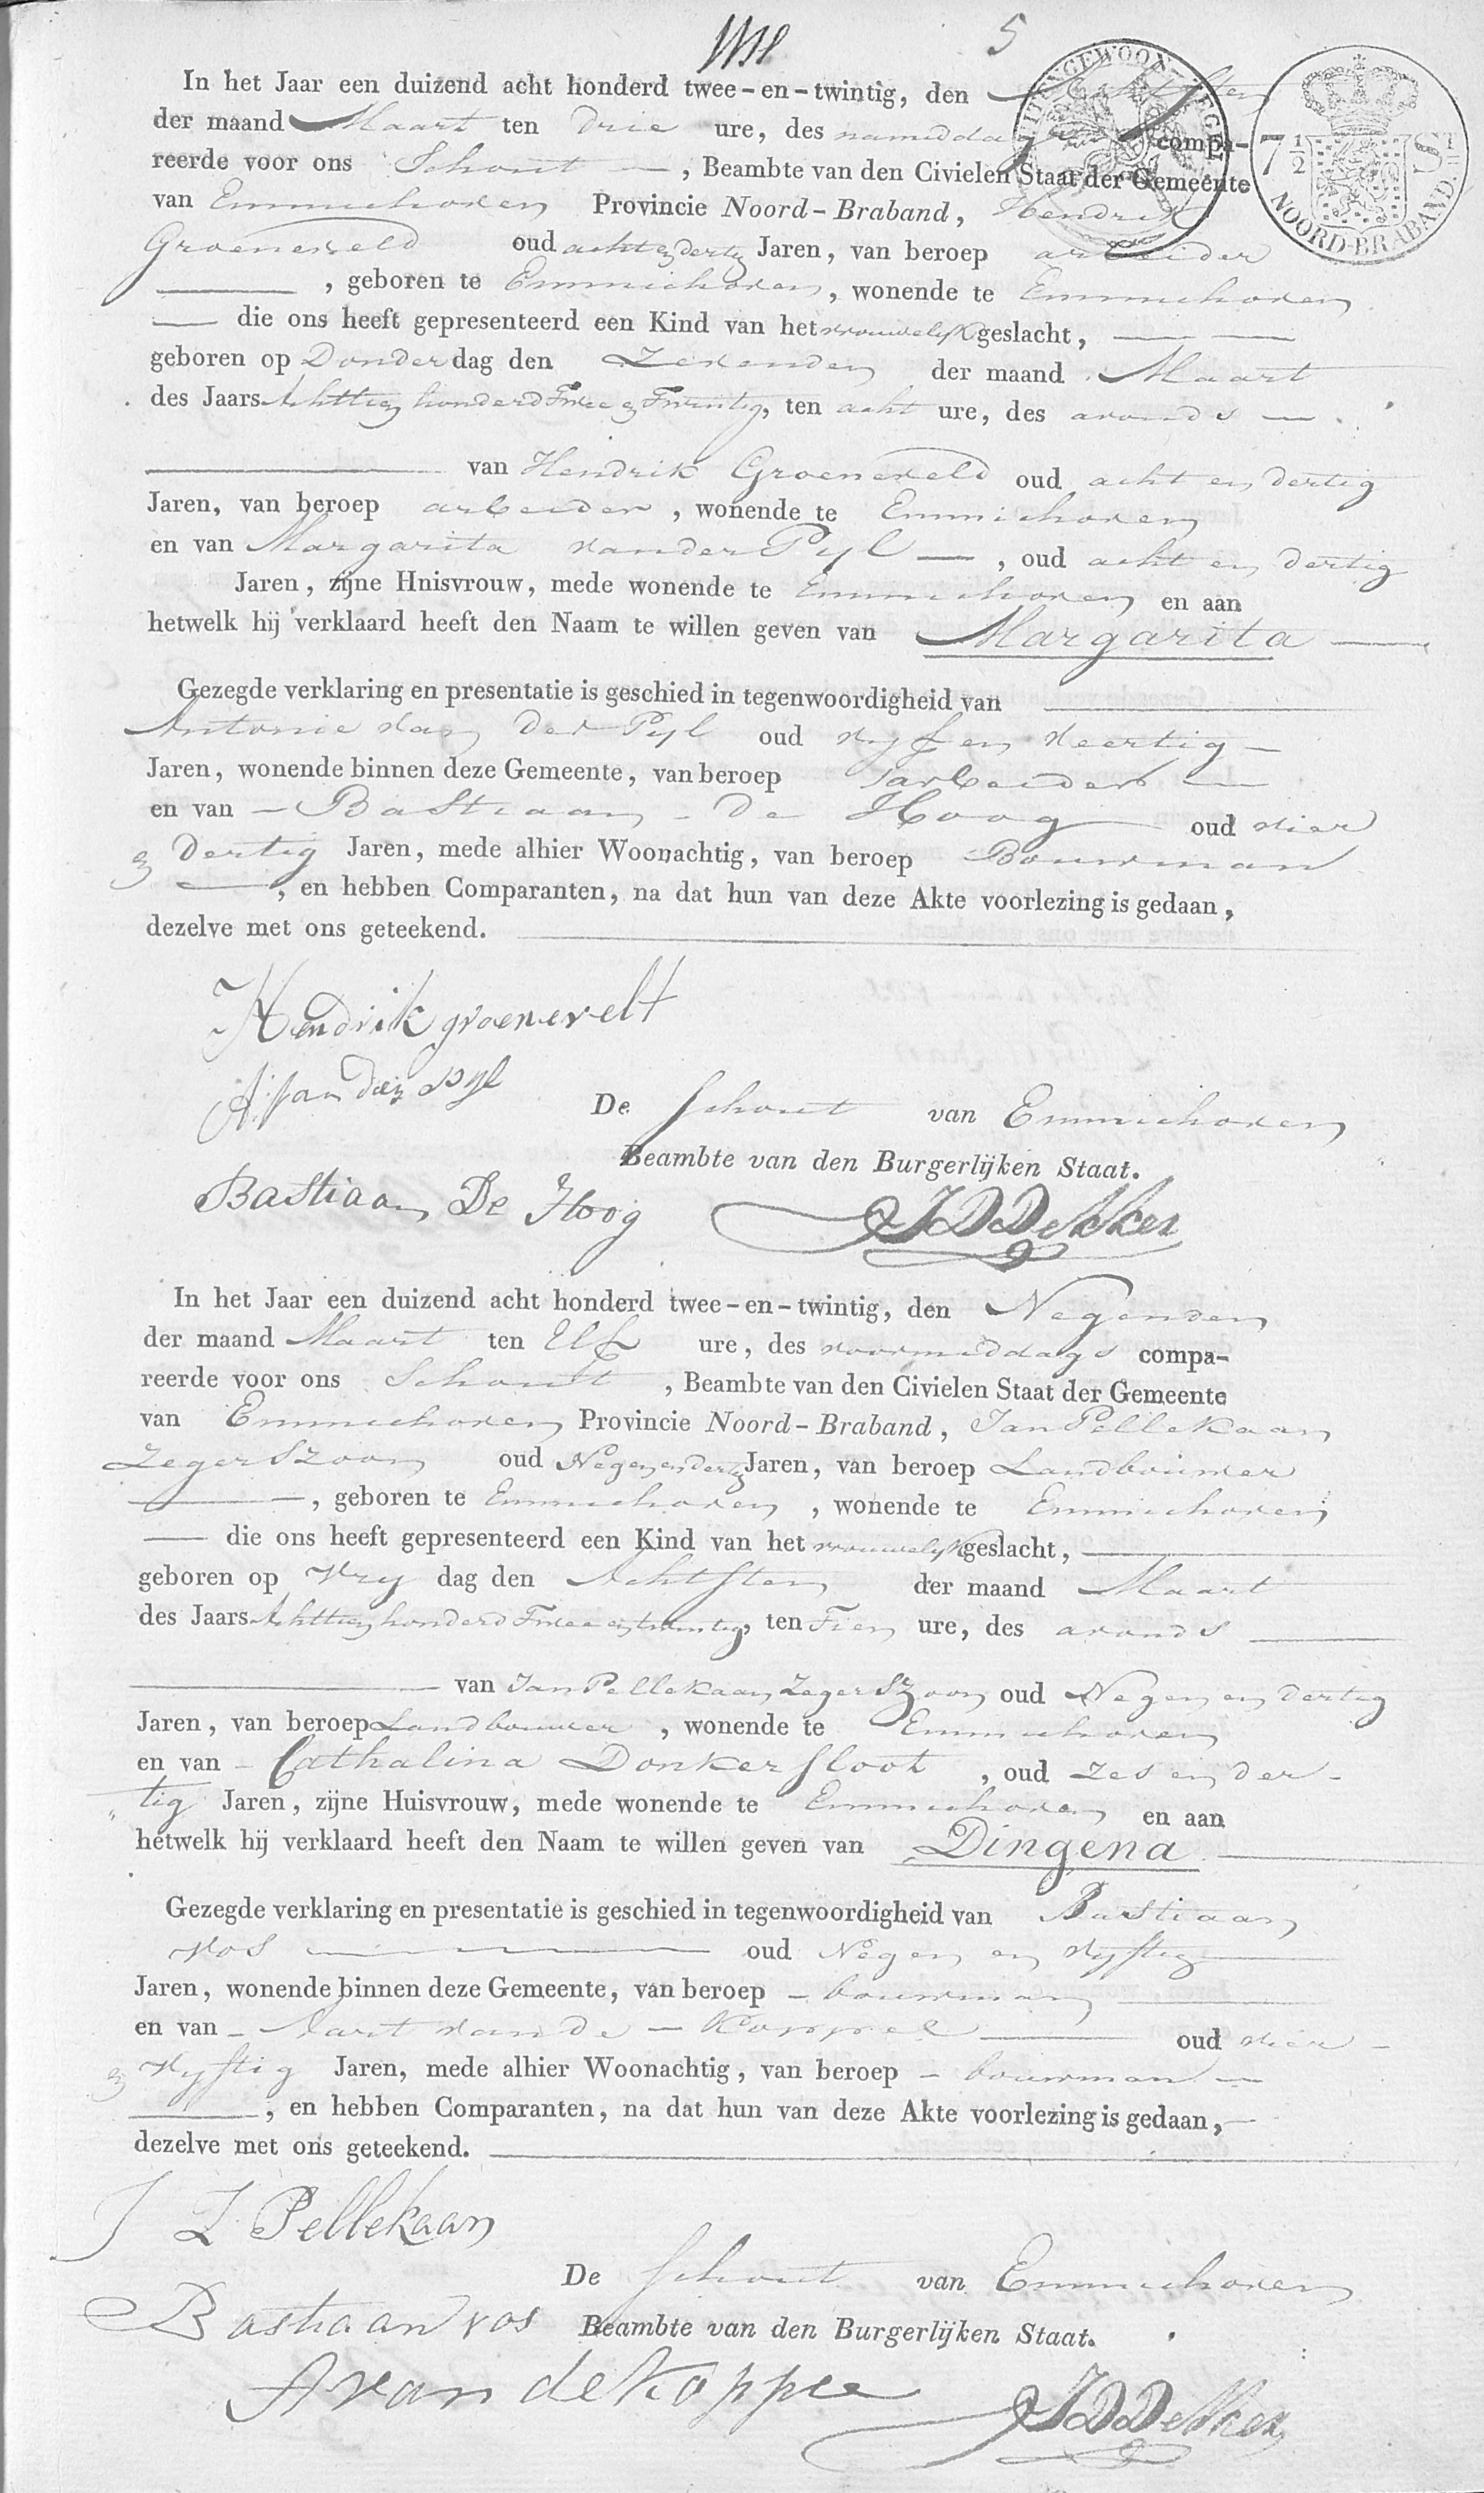 5
In het Jaar een duizend acht honderd twee-en-twintig, den Achtsten
der maand Maart ten drie ure, des namiddags compa-
reerde voor ons Schout, Beambte van den Civielen Staat der Gemeente
van Emmichoven Provincie Noord-Braband, Hendrik
Groeneveld oud acht en dertig Jaren, van beroep arbeider
, geboren te Emmichoven, wonende te Emmichoven
die ons heeft gepresenteerd een Kind van het vrouwelyk geslacht,
geboren op Donder dag den Zevenden der maand Maart
des Jaars Achttien honderd Twee en Twintig, ten acht ure, des avonds
van Hendrik Groeneveld oud acht en dertig
Jaren, van beroep arbeider, wonende te Emmichoven
en van Margarita van der Pyl, oud acht en dertig
Jaren, zijne Hnisvrouw, mede wonende te Emmichoven en aan
hetwelk hij verklaard heeft den Naam te willen geven van Margarita
Gezegde verklaring en presentatie is geschied in tegenwoordigheid van
Antonie van Der Pyl oud vyf en veertig
Jaren, wonende binnen deze Gemeente, van beroep arbeider
en van Bastiaan De Hoog oud vier
en Dertig Jaren, mede alhier Woonachtig, van beroep Bouwman
, en hebben Comparanten, na dat hun van deze Akte voorlezing is gedaan,
dezelve met ons geteekend.
Hendrik groenevelt
A van der Pyl
De Schout van Emmichoven
Beambte van den Burgerlijken Staat.
Bastiaan De Hoog JDDekker
In het Jaar een duizend acht honderd twee-en-twintig, den Negenden
der maand Maart ten Elf ure, des voormiddags compa-
reerde voor ons Schout, Beambte van den Civielen Staat der Gemeente
van Emmichoven Provincie Noord-Braband, Jan Pellekaan
Zegerszoon oud Negen en dertig Jaren, van beroep Landbouwer
, geboren te Emmichoven, wonende te Emmichoven
die ons heeft gepresenteerd een Kind van het vrouwelyk geslacht,
geboren op Vry dag den Achtsten der maand Maart
des Jaars Achttien honderd Twee en twintig, ten Tien ure, des avonds
van Jan Pellekaan Zegerszoon oud Negen en dertig
Jaren, van beroep Landbouwer, wonende te Emmichoven
en van Cathalina Donkersloot, oud zes en der-
tig Jaren, zijne Huisvrouw, mede wonende te Emmichoven en aan
hetwelk hij verklaard heeft den Naam te willen geven van Dingena
Gezegde verklaring en presentatie is geschied in tegenwoordigheid van Bastiaan
Vos oud Negen en vyftig
Jaren, wonende binnen deze Gemeente, van beroep bouwman
en van Aart van de Koppel oud vier
en vyftig Jaren, mede alhier Woonachtig, van beroep bouwman
, en hebben Comparanten, na dat hun van deze Akte voorlezing is gedaan,
dezelve met ons geteekend.
J Z Pellekaan
De Schout van Emmichoven
Bastiaan vos Beambte van den Burgerlijken Staat.
A van de Koppel JDDekker
7 1/2 ST
NOORD-BRABAND.